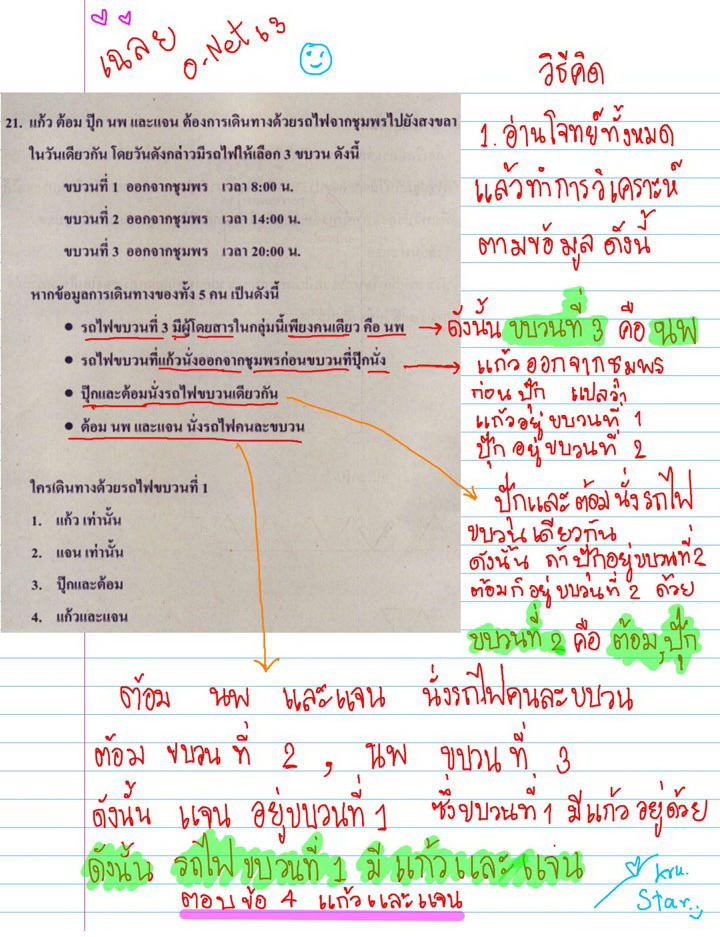 เฉลย
O-Net 63
21. แก้ว ต้อม ปุ๊ก นพ และแจน ต้องการเดินทางด้วยรถไฟจากชุมพรไปยังสงขลา
ในวันเดียวกัน โดยวันดังกล่าวมีรถไฟให้เลือก 3 ขบวน ดังนี้
ขบวนที่ 1 ออกจากชุมพร เวลา 8:00 น.
ขบวนที่ 2 ออกจากชุมพร เวลา 14:00 น.
ขบวนที่ 3 ออกจากชุมพร เวลา 20:00 น.
หากข้อมูลการเดินทางของทั้ง 5 คน เป็นดังนี้
● รถไฟขบวนที่ 3 มีผู้โดยสารในกลุ่มนี้เพียงคนเดียว คือ นพ
● รถไฟขบวนที่แก้วนั่งออกจากชุมพรก่อนขบวนที่ปุ๊กนั่ง
● ปุ๊กและต้อมนั่งรถไฟขบวนเดียวกัน
● ต้อม นพ และแจน นั่งรถไฟคนละขบวน
ใครเดินทางด้วยรถไฟขบวนที่ 1
1. แก้ว เท่านั้น
2. แจน เท่านั้น
3. ปุ๊กและต้อม
4. แก้วและแจน
วิธีคิด
1. อ่านโจทย์ทั้งหมด
แล้วทำการวิเคราะห์
ตามข้อมูล ดังนี้
ดังนั้น ขบวนที่ 3 คือ นพ
แก้วออกจากชุมพร
ก่อน ปุ๊ก แปลว่า
แก้วอยู่ ขบวนที่ 1
ปุ๊ก อยู่ ขบวนที่ 2
ปุ๊กและต้อมนั่งรถไฟ
ขบวนเดียวกัน
ดังนั้น ถ้าปุ๊กอยู่ขบวนที่2
ต้อมก็อยู่ขบวนที่ 2 ด้วย
ขบวนที่ 2 คือ ต้อม,ปุ๊ก
ต้อม นพ และแจน นั่งรถไฟคนละขบวน
ต้อม ขบวน ที่ 2 , นพ ขบวน ที่ 3
ดังนั้น แจน อยู่ขบวนที่ 1 ซึ่งขบวนที่ 1 มีแก้วอยู่ด้วย
ดังนั้น รถไฟขบวนที่ 1 มีแก้วและแจน
ตอบข้อ 4 แก้วและแจน
ครู.
Star